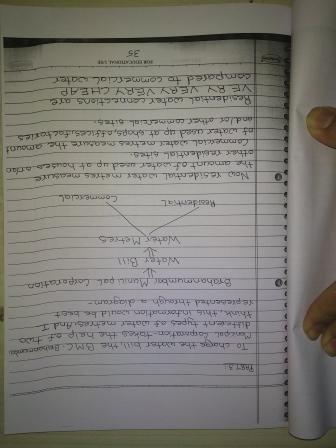 PART 3:
To charge the water bill, the BMC-Brihanmumbai
Municipal Corporation-takes the help of two
different types of water metres.And, I
think, this information could be best
represented through a diagram:-
Brihanmumbai Munici pal Corporation
Water Bill
Water Metres
Residential Commercial
Now, residential water metres measure
the amount of water used up at houses and/or
other residential sites.
Commercial water metres measure the amount
of water used up at shops, offices, factories
and/or other commercial sites.
Residential water connections are
VERY VERY VERY CHEAP
compared to commercial water
FOR EDUCATIONAL USE
35